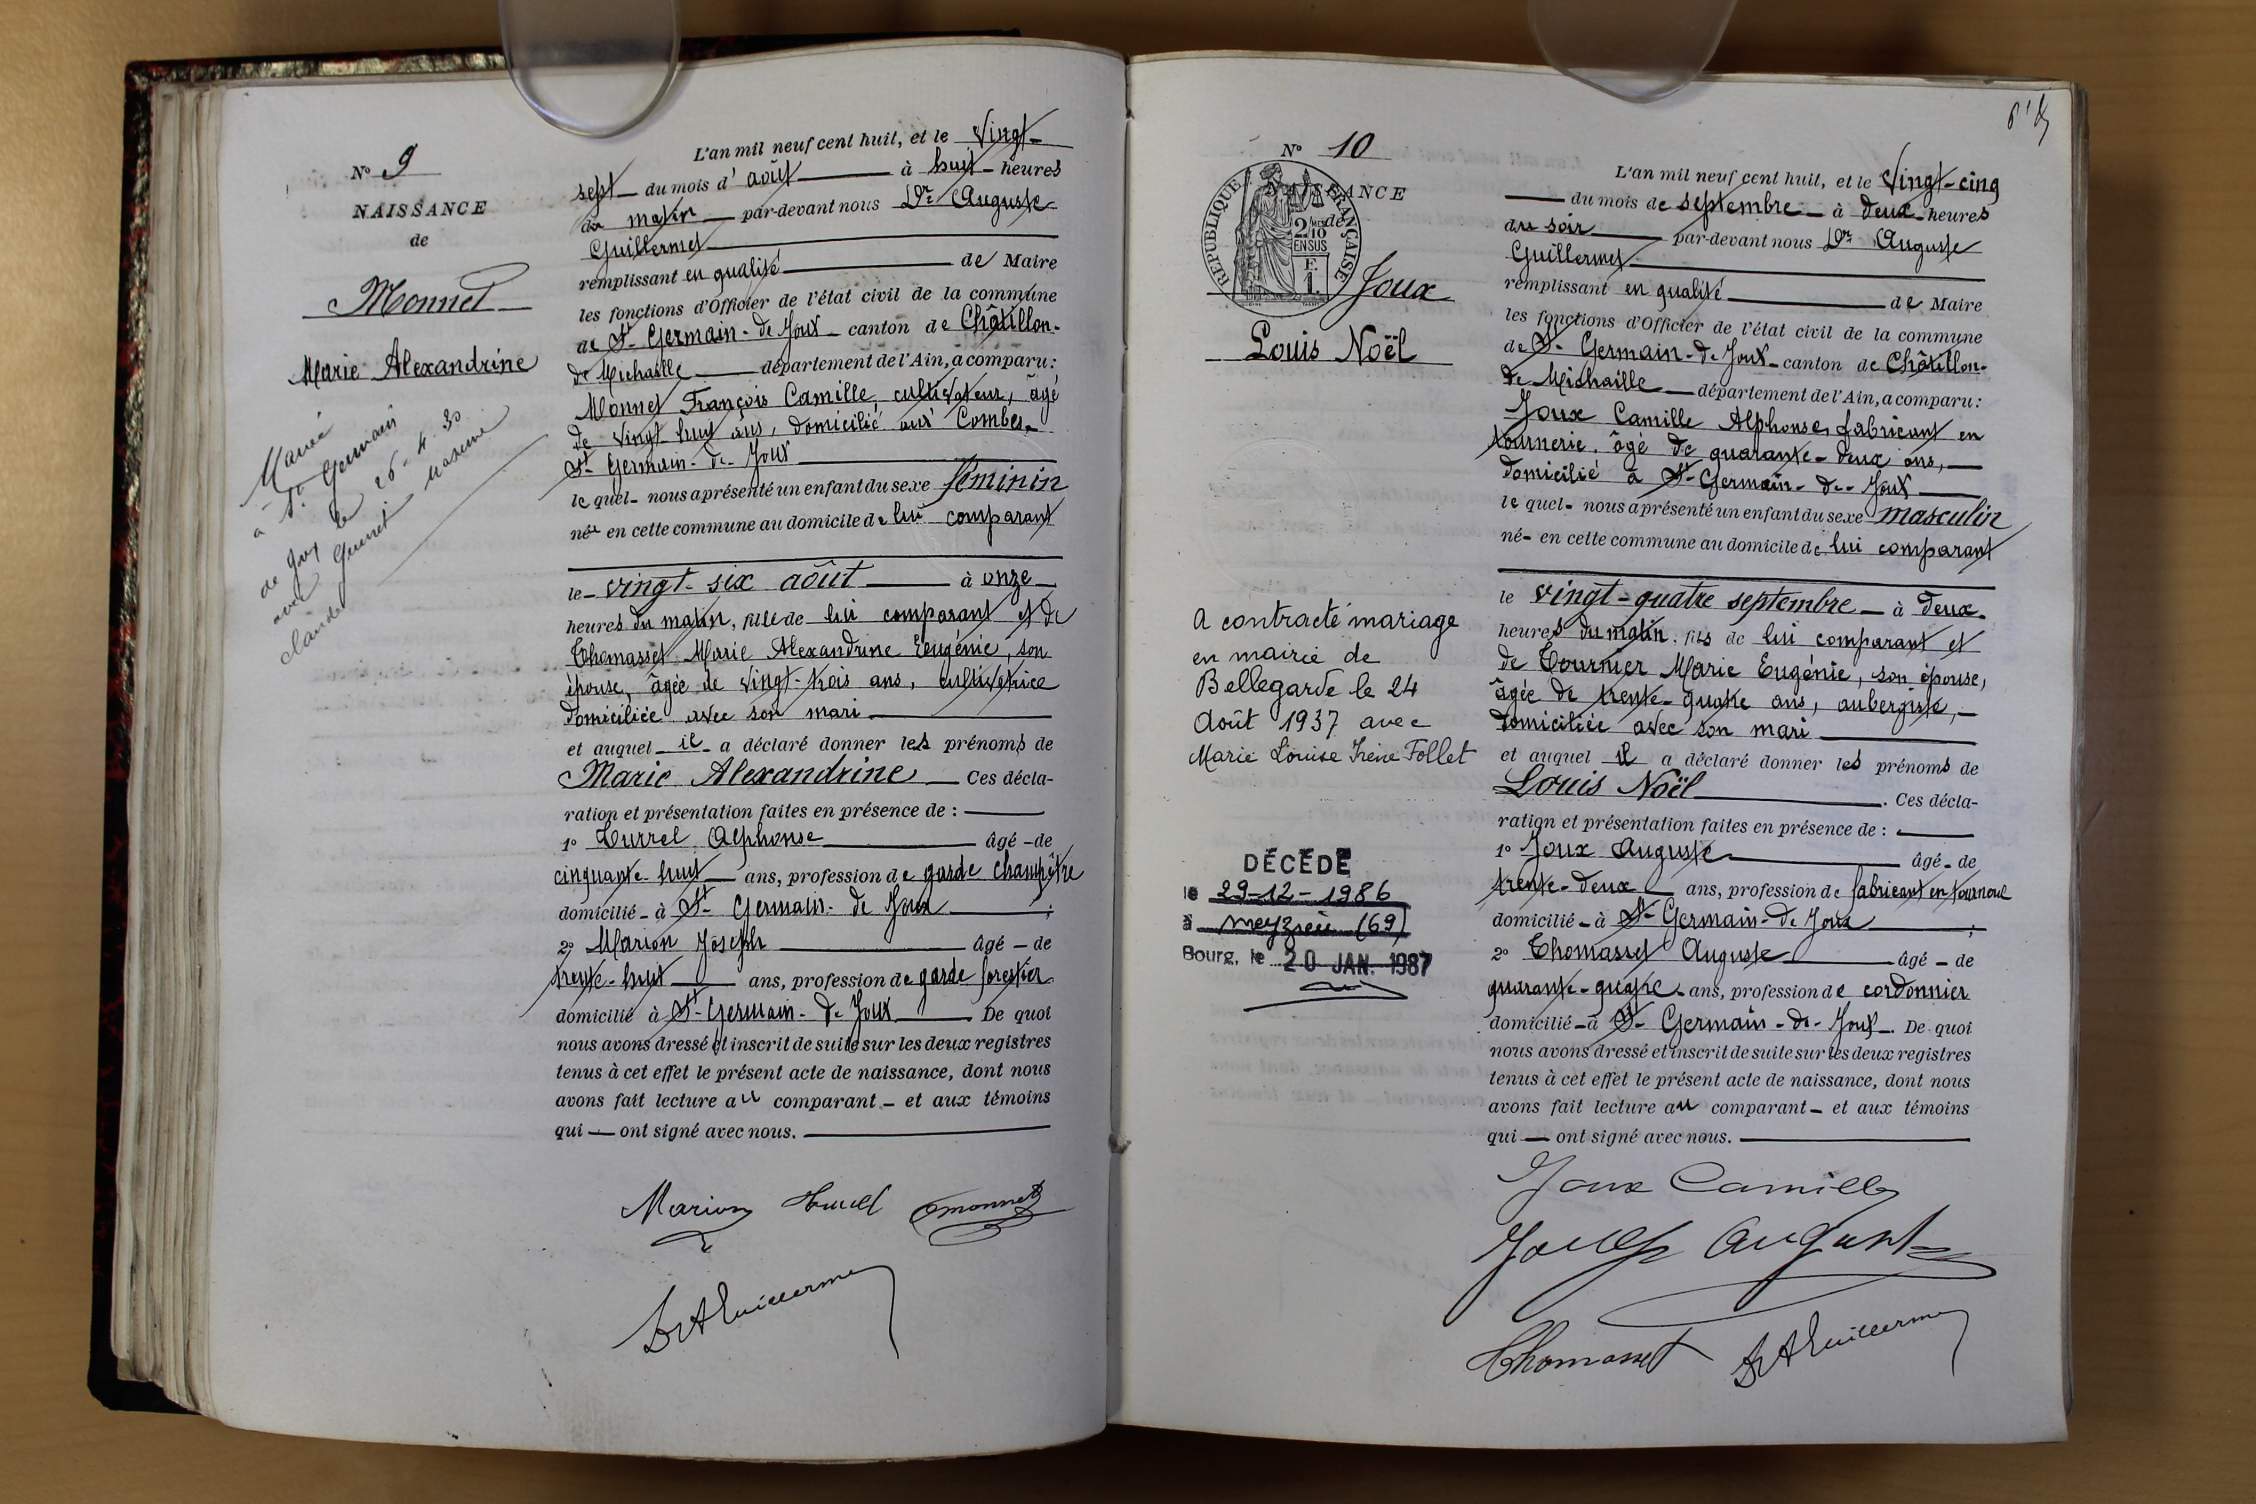 N° 9
NAISSANCE
de
Monnet
Marie Alexandrine
Mariée
à St Germain
de Joux le 26-4-30
avec Guinet Maxime
Claude
L'an mil neuf cent huit, et le Vingt-
sept du mois d'août à huit heures
du matin par-devant nous Dr Auguste
Guillermet
remplissant en qualité de Maire
les fonctions d'Officier de l'état civil de la commune
de St Germain-de-Joux canton de Châtillon-
de Michaille département de l'Ain, a comparu:
Monnet François Camille, cultivateur, âgé
de vingt huit ans, domicilié aux Combes-
St Germain-de-Joux
lequel nous a présenté un enfant du sexe féminin
née en cette commune au domicile de lui comparant
le vingt-six août à onze
heures du matin, fille de lui comparant et de
Thomasset Marie Alexandrine Eugénie, son
épouse, âgée de vingt-trois ans, cultivatrice
domiciliée avec son mari
et auquel il a déclaré donner les prénoms de
Marie Alexandrine Ces décla-
ration et présentation faites en présence de :
1° Turrel Alphonse âgé de
cinquante-huit ans, profession de garde champêtre
domicilié à St Germain-de Joux ;
2° Marion Joseph âgé de
trente-huit ans, profession de garde forestier
domicilié à St Germain-de Joux De quoi
nous avons dressé et inscrit de suite sur les deux registres
tenus à cet effet le présent acte de naissance, dont nous
avons fait lecture au comparant et aux témoins
qui ont signé avec nous.
Marion Turrel Cmonnet
Dr A Guillermet
N° 10
NAISSANCE
de
RÉPUBLIQUE FRANÇAISE
2/10 EN SUS
F. 1.
Joux
Louis Noël
A contracté mariage
en mairie de
Bellegarde le 24
Août 1937 avec
Marie Louise Irène Follet
DÉCÉDÉ
le 29-12-1986
à Meyzieu (69)
Bourg, le 20 JAN. 1987
L'an mil neuf cent huit, et le Vingt-cinq
du mois de septembre à deux heures
du soir par-devant nous Dr Auguste
Guillermet
remplissant en qualité de Maire
les fonctions d'Officier de l'état civil de la commune
de St Germain-de Joux canton de Châtillon-
de Michaille département de l'Ain, a comparu:
Joux Camille Alphonse, fabricant en
tournerie, âgé de quarante-deux ans,
domicilié à St Germain-de-Joux
lequel nous a présenté un enfant du sexe masculin
né en cette commune au domicile de lui comparant
le vingt-quatre septembre à deux
heures du matin, fils de lui comparant et
de Tournier Marie Eugénie, son épouse,
âgée de trente-quatre ans, aubergiste,
domiciliée avec son mari
et auquel il a déclaré donner les prénoms de
Louis Noël. Ces décla-
ration et présentation faites en présence de :
1° Joux Auguste âgé de
trente-deux ans, profession de fabricant en tournerie
domicilié à St Germain-de Joux ;
2° Thomasset Auguste âgé de
quarante-quatre ans, profession de cordonnier
domicilié à St Germain-de-Joux. De quoi
nous avons dressé et inscrit de suite sur les deux registres
tenus à cet effet le présent acte de naissance, dont nous
avons fait lecture au comparant et aux témoins
qui ont signé avec nous.
Joux Camille
Joux Auguste
Thomasset Dr A Guillermet